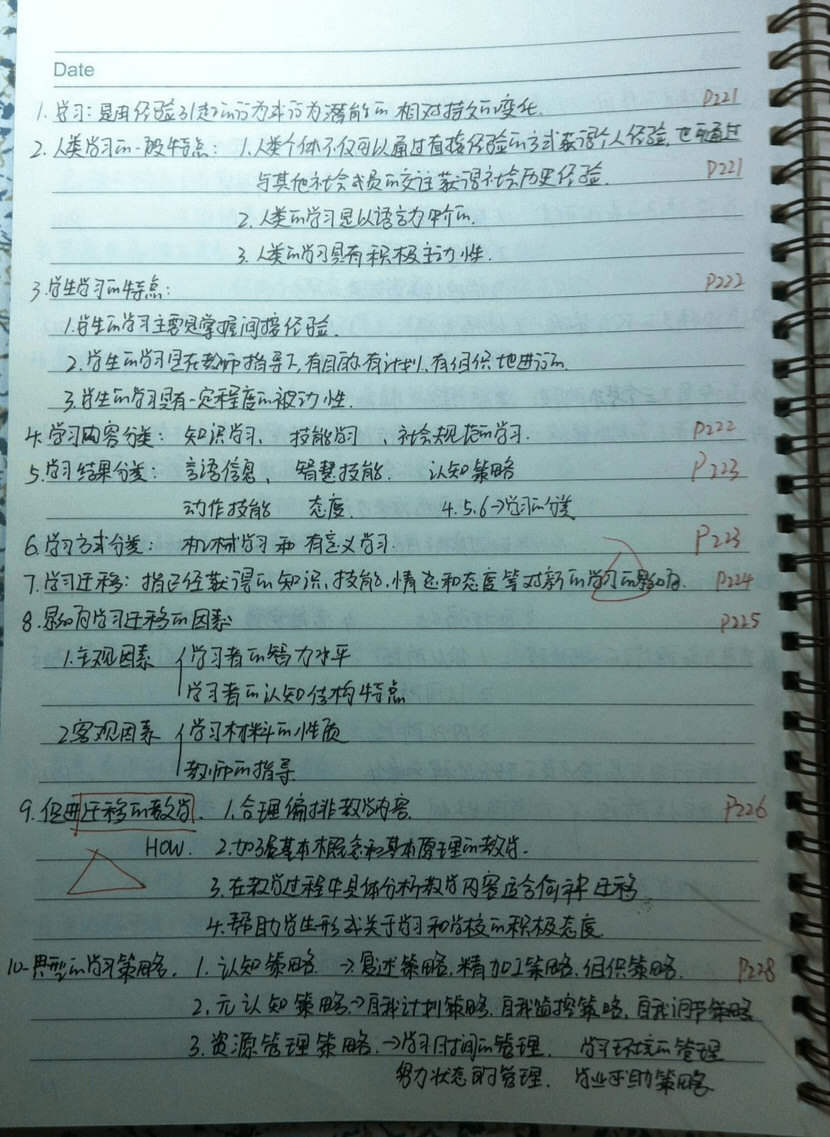 Date
1. 学习: 是由经验引起的行为或行为潜能的 相对持久的变化. P221
2. 人类学习的一般特点: 1.人类个体不仅可以通过直接经验的方式获得个人经验, 也可通过
与其他社会成员的交往获得社会历史经验. P221
2. 人类的学习是以语言为中介的.
3. 人类的学习具有积极主动性.
3.学生学习的特点: P222
1.学生的学习主要是掌握间接经验.
2.学生的学习是在教师指导下,有目的、有计划、有组织地进行的.
3.学生的学习具有一定程度的被动性.
4.学习内容分类: 知识学习、 技能学习 、社会规范的学习. P222
5.学习结果分类: 言语信息、 智慧技能. 认知策略 P223
动作技能 态度. 4.5.6→学习的分类
6.学习方式分类: 机械学习和 有意义学习. P223
7.学习迁移: 指已经获得的知识、技能、情感和态度等对新的学习的影响. P224
8.影响学习迁移的因素 P225
1.主观因素 { 学习者的智力水平
学习者的认知结构特点
2.客观因素 { 学习材料的性质
教师的指导
9.促进迁移的教学. 1.合理编排教学内容. P226
HOW. 2.加强基本概念和基本原理的教学.
3.在教学过程中具体分析教学内容适合何种迁移
4.帮助学生形成关于学习和学校的积极态度
10.典型的学习策略. 1. 认知策略 →复述策略.精加工策略.组织策略. P228
2. 元认知策略→自我计划策略.自我监控策略.自我调节策略
3.资源管理策略.→学习时间的管理. 学习环境的管理
努力状态的管理. 学业求助策略